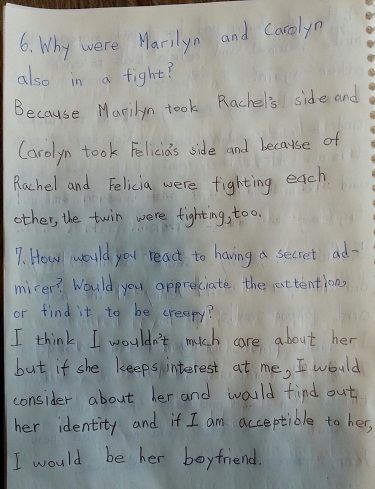 6. Why were Marilyn and Carolyn
also in a fight?
Because Marilyn took Rachel's side and
Carolyn took Felicia's side and because of
Rachel and Felicia were fighting each
other, the twin were fighting, too.
7. How would you react to having a secret ad-
mirer? Would you appreciate the attention,
or find it to be creepy?
I think I wouldn't much care about her
but if she keeps interest at me, I would
consider about her and would find out
her identity and if I am acceptible to her,
I would be her boyfriend.